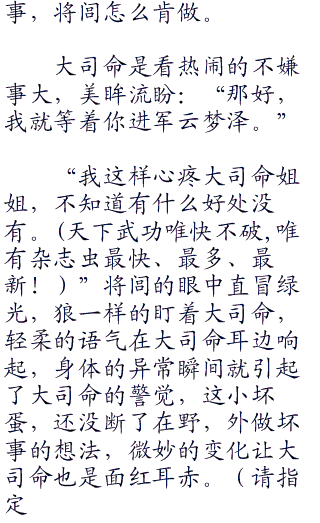 事，将闾怎么肯做。
大司命是看热闹的不嫌
事大，美眸流盼：“那好，
我就等着你进军云梦泽。”
“我这样心疼大司命姐
姐，不知道有什么好处没
有。(天下武功唯快不破,唯
有杂志虫最快、最多、最
新！）”将闾的眼中直冒绿
光，狼一样的盯着大司命，
轻柔的语气在大司命耳边响
起，身体的异常瞬间就引起
了大司命的警觉，这小坏
蛋，还没断了在野，外做坏
事的想法，微妙的变化让大
司命也是面红耳赤。（请指
定